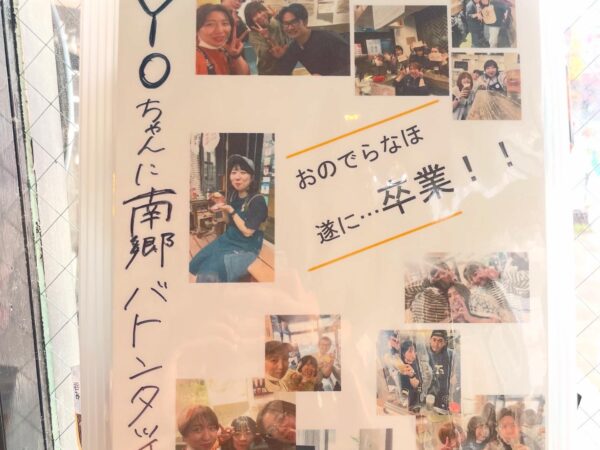 YOちゃんに南郷バトンタッ
おのでらなほ
遂に…卒業！！